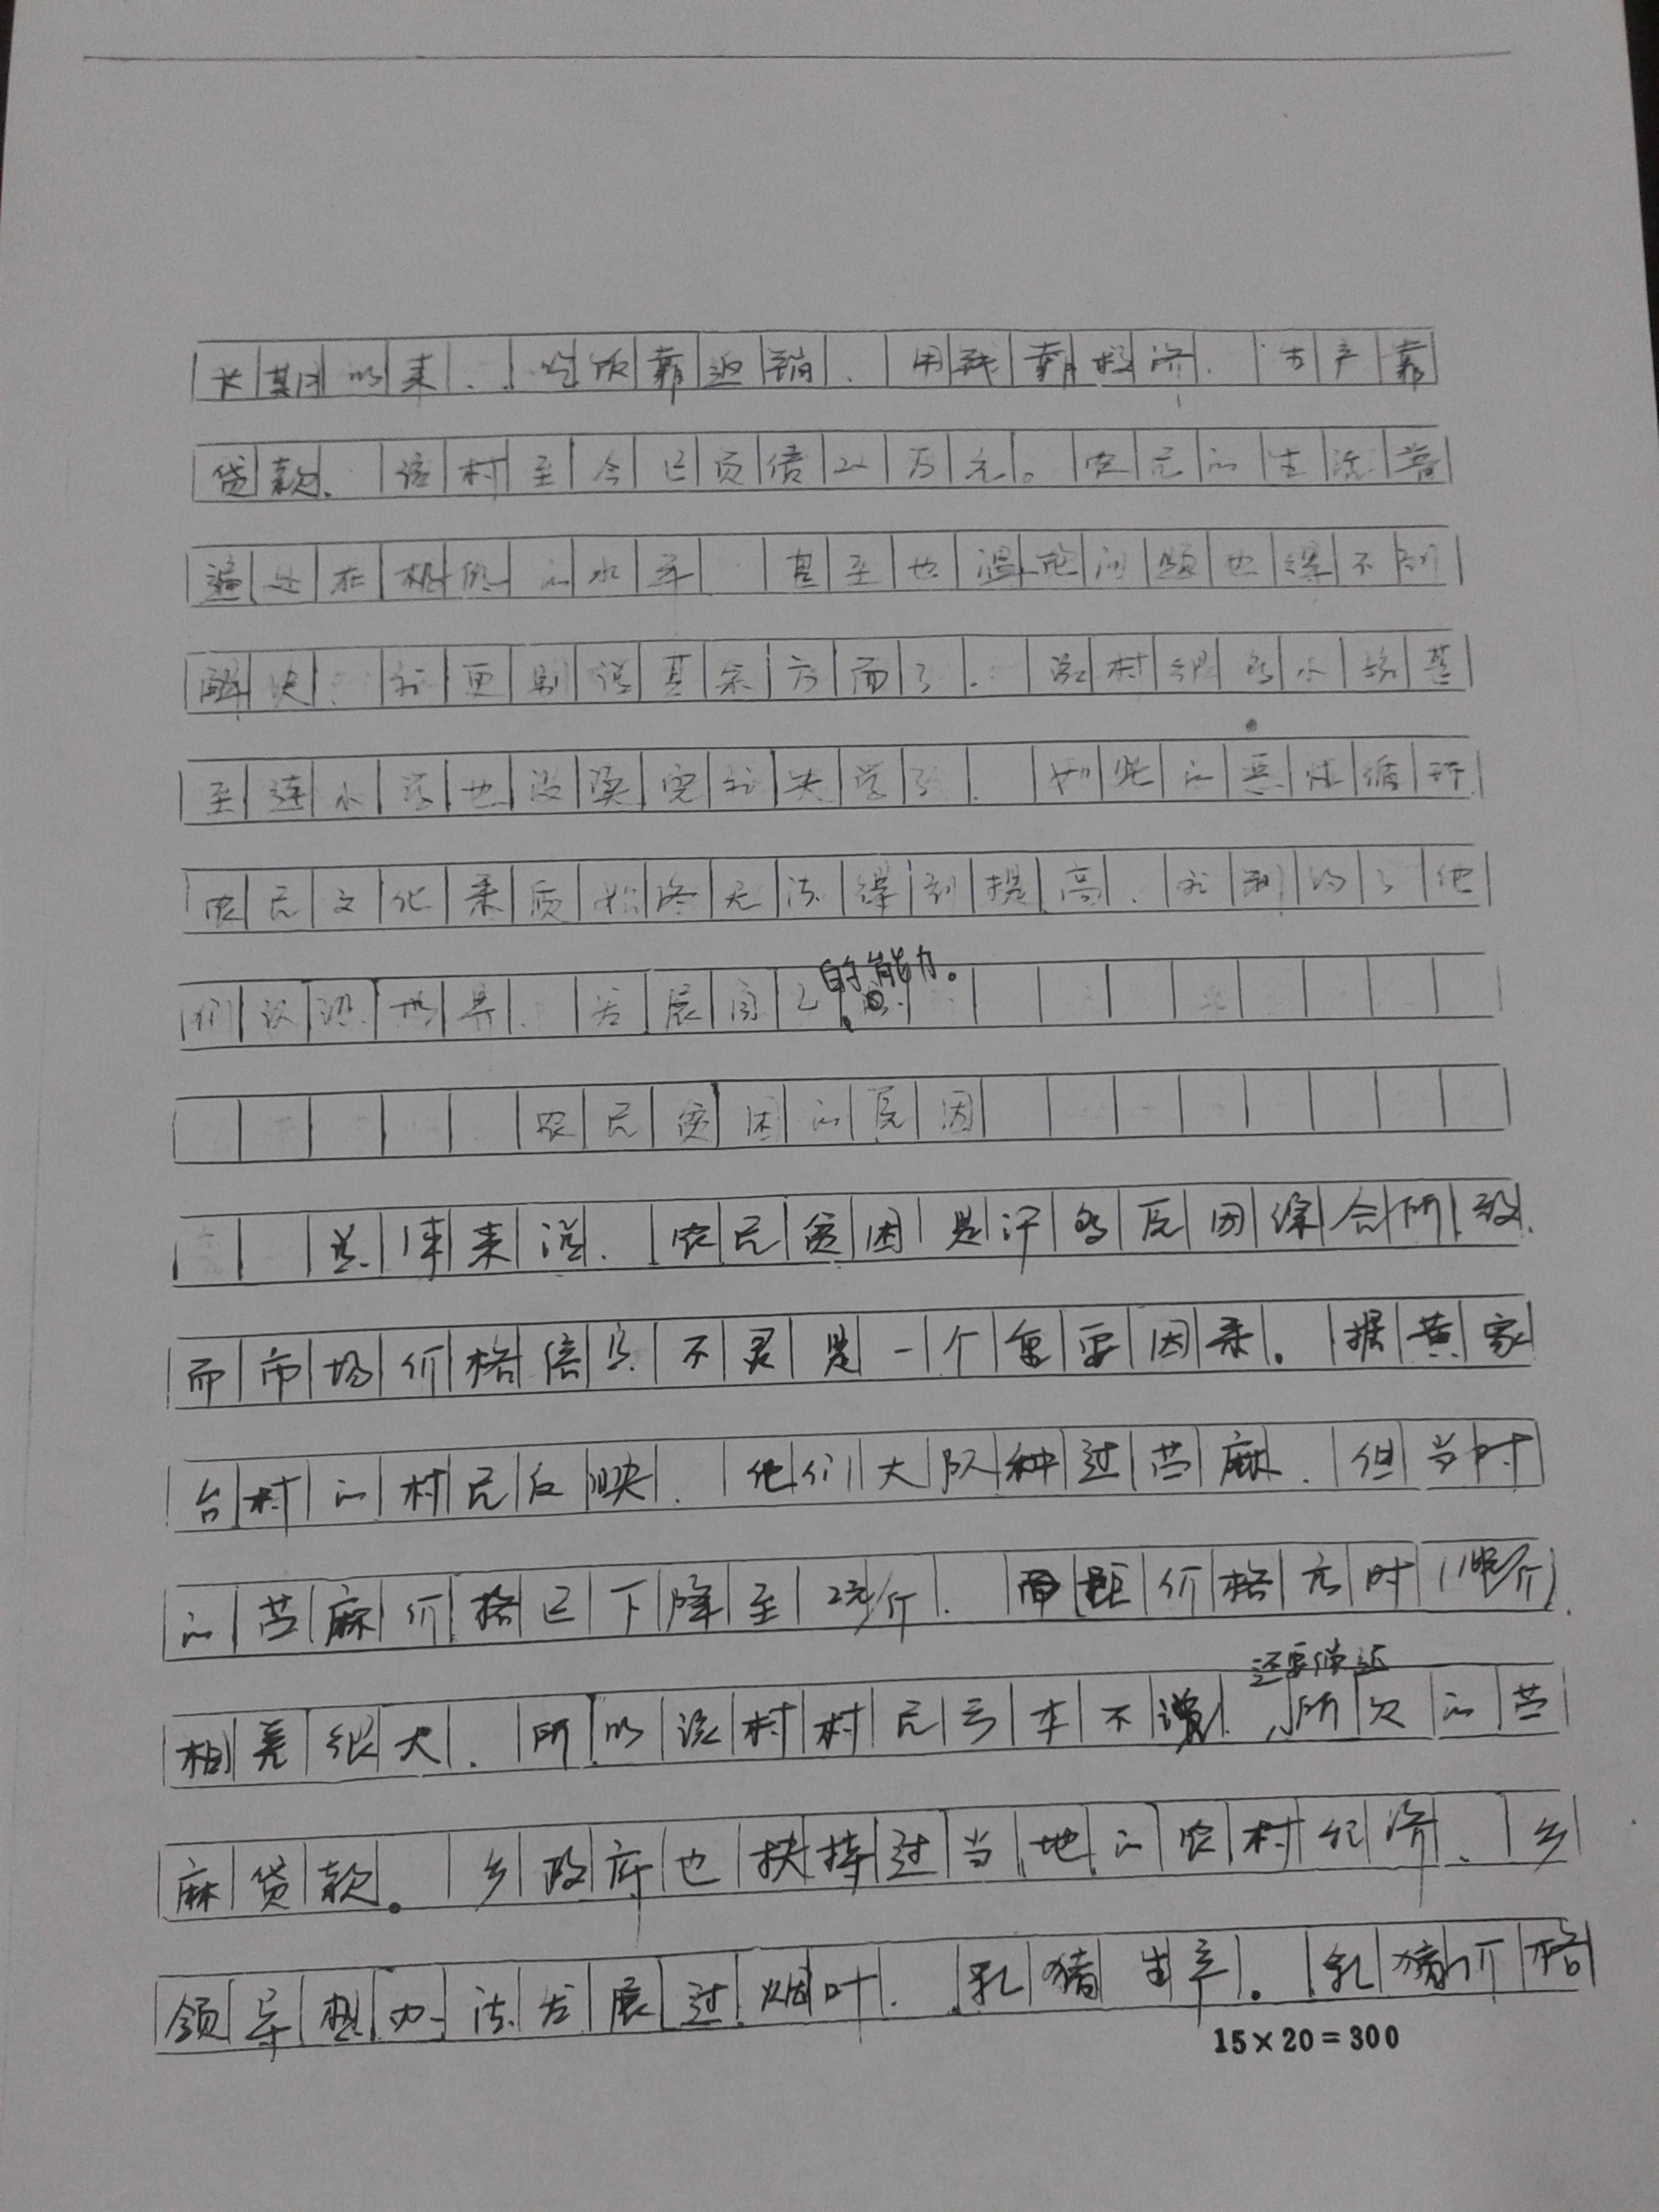 长期以来，吃饭靠返销，用钱靠救济，生产靠
贷款，该村至今已负债22万元。农民的生活普
遍处在极低的水平，甚至也温饱问题也得不到
解决，就更别说其余方面了。该村很多小孩甚
至连小学也没读完就失学了。如此的恶性循环
农民文化素质始终无法得到提高，就制约了他
们认识世界，发展自己的能力。
农民贫困的原因
总体来说，农民贫困是许多原因综合所致，
而市场价格信息不灵是一个重要因素。据黄家
台村的村民反映，他们大队种过苎麻，但当时
的苎麻价格已下降至2元/斤，而距价格高时( 元/斤)
相差很大，所以该村村民亏本不说，还要偿还所欠的苎
麻贷款。乡政府也扶持过当地的农村经济，乡
领导想办法发展过烟叶，乳猪生产。乳猪价格
15×20=300